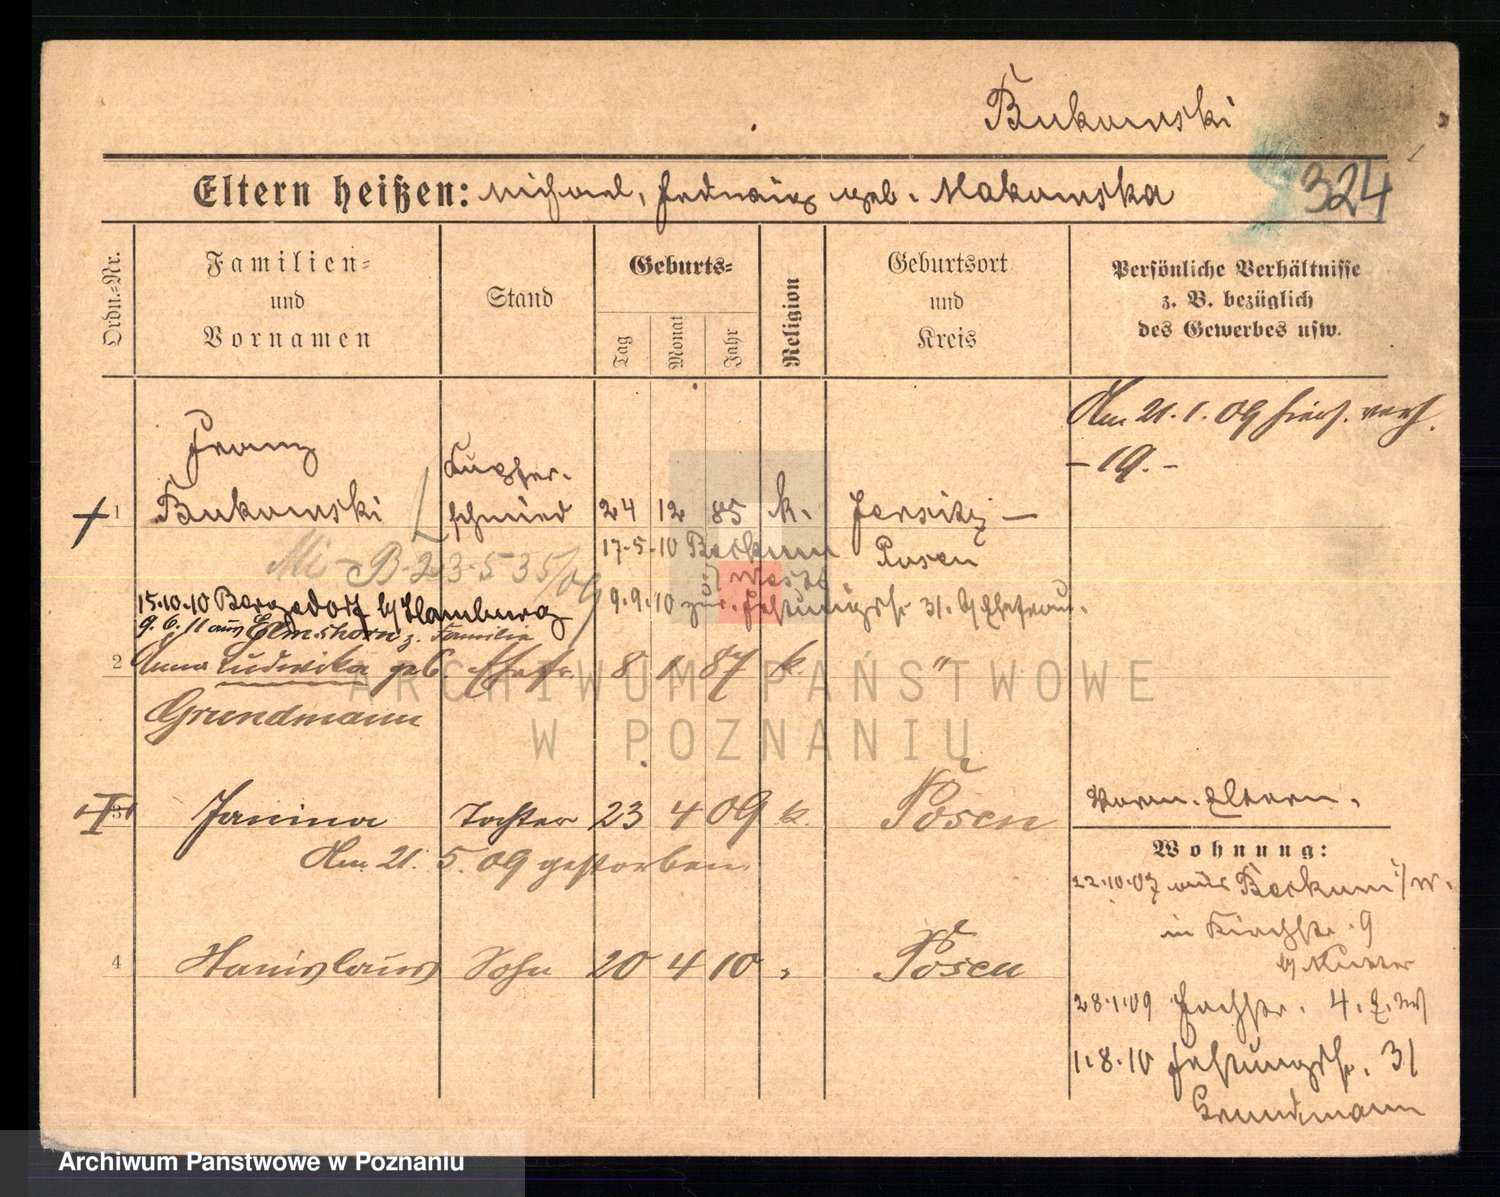 Bukowski
324
Eltern heißen: Michael, Hedwig geb. Makowska
Ordn.-Nr.
Familien-
und
Vornamen
Stand
Geburts-
Tag
Monat
Jahr
Religion
Geburtsort
und
Kreis
Persönliche Verhältnisse
z. B. bezüglich
des Gewerbes usw.
Am 21.1.09 hier verh.
- 19. -
Franz
Kupfer-
1 Bukowski schmied 24 12 85 k. Jersitz -
17.5.10 Bochum Posen
B 23535/09 i/Westf.
15.10.10 Bergedorf b/Hamburg 9.9.10 zur. Festungsstr. 31. b/Ehefrau.
9.6.11 aus Elmshorn z. Familie
2 Anna Ludwika geb. Ehefr. 8 1 87 k. "
Grundmann
3 Janina Tochter 23 4 09 k. Posen
Am 21. 5. 09 gestorben
4 Stanislaus Sohn 20 4 10 " Posen
Eltern.
Wohnung:
22.10.07 aus Bochum i/W.
in Kirchstr. 9
b/Mutter
28.1.09 4.
1.8.10 Festungsstr. 31
Grundmann
ARCHIWUM PAŃSTWOWE
W POZNANIU
Archiwum Państwowe w Poznaniu